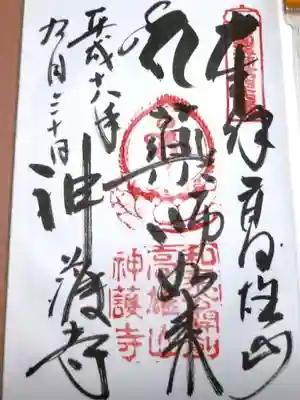 奉拝 高雄山
薬師如来
神護寺
平成十八年
九月三十日
高雄山
神護寺